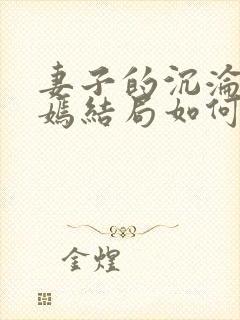 妻子的沉淪
嫣結局如何
金煌